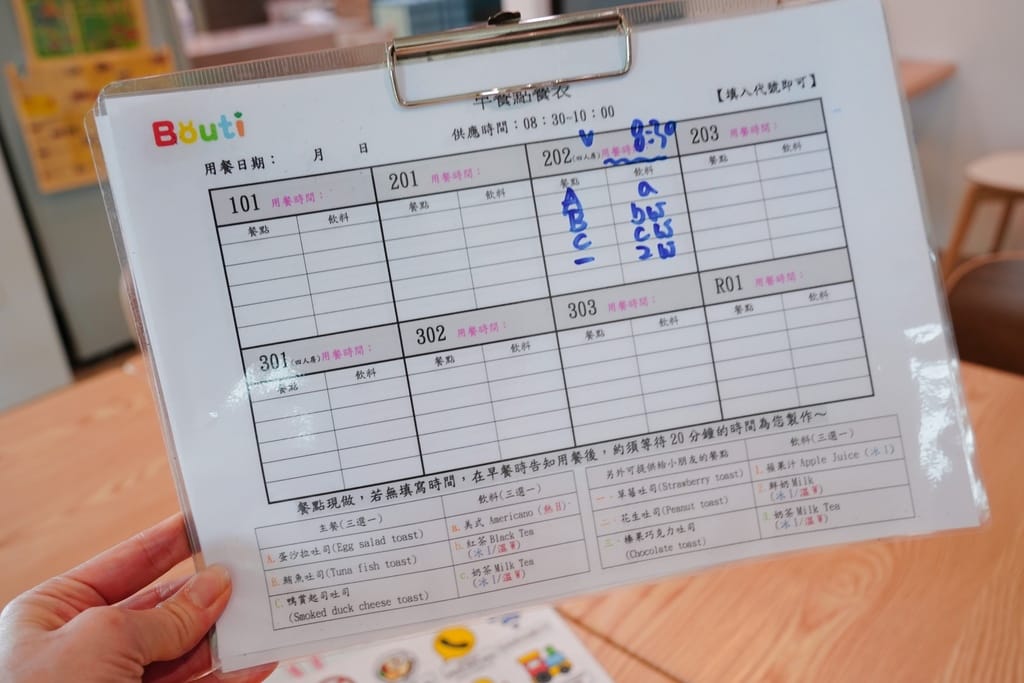 Bouti
早餐點餐表
【填入代號即可】
供應時間：08：30~10：00
用餐日期： 月 日
101 用餐時間：
201 用餐時間：
202(四人房)用餐時 v 8:30
203 用餐時間：
餐點 飲料 餐點 飲料 餐點 飲料 餐點 飲料
A a
B bW
C cW
一 2W
301(四人房)用餐時間：
302 用餐時間：
303 用餐時間：
R01 用餐時間：
餐點 飲料 餐點 飲料 餐點 飲料 餐點 飲料
餐點現做，若無填寫時間，在早餐時告知用餐後，約須等待 20 分鐘的時間為您製作～
主餐(三選一) 飲料(三選一)
A. 蛋沙拉吐司(Egg salad toast)
B. 鮪魚吐司(Tuna fish toast)
C. 鴨賞起司吐司
(Smoked duck cheese toast)
a. 美式 Americano (熱 H)
b. 紅茶 Black Tea
(冰 I/溫 W)
c. 奶茶 Milk Tea
(冰 I/溫 W)
另外可提供給小朋友的餐點 飲料(三選一)
一、草莓吐司(Strawberry toast)
二、花生吐司(Peanut toast)
三、榛果巧克力吐司
(Chocolate toast)
1. 蘋果汁 Apple Juice (冰 I)
2. 鮮奶 Milk
(冰 I/溫 W)
3. 奶茶 Milk Tea
(冰 I/溫 W)